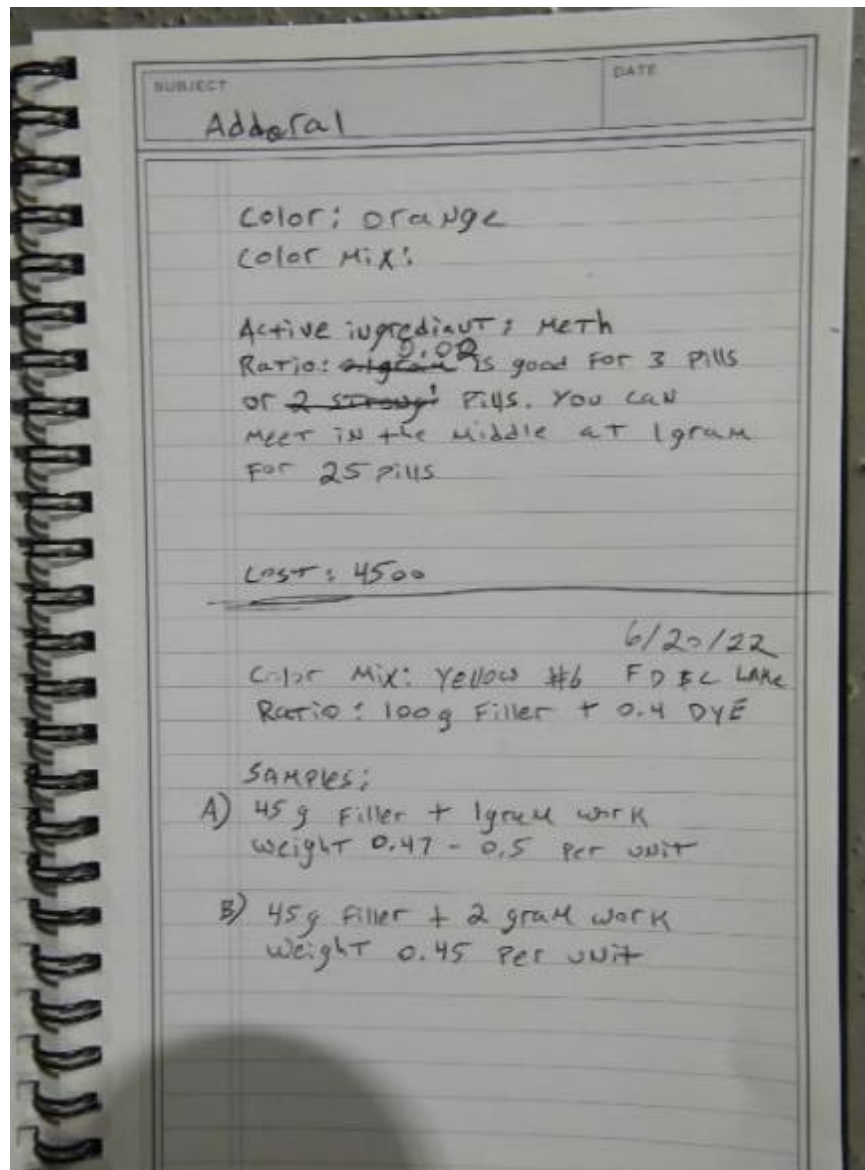 SUBJECT
DATE
Adderal
Color: orange
Color Mix:
Active ingrediant: Meth
Ratio: is good for 3 pills
or 2 strong pills. You can
meet in the middle at 1gram
for 25 pills
Cost: 4500
6/20/22
Color Mix: Yellow #6 FD&C LAKE
Ratio: 100g Filler + 0.4 DYE
SAMPLES:
A) 45g Filler + 1gram work
weight 0.47 - 0.5 per unit
B) 45g Filler + 2 gram work
weight 0.45 Per unit